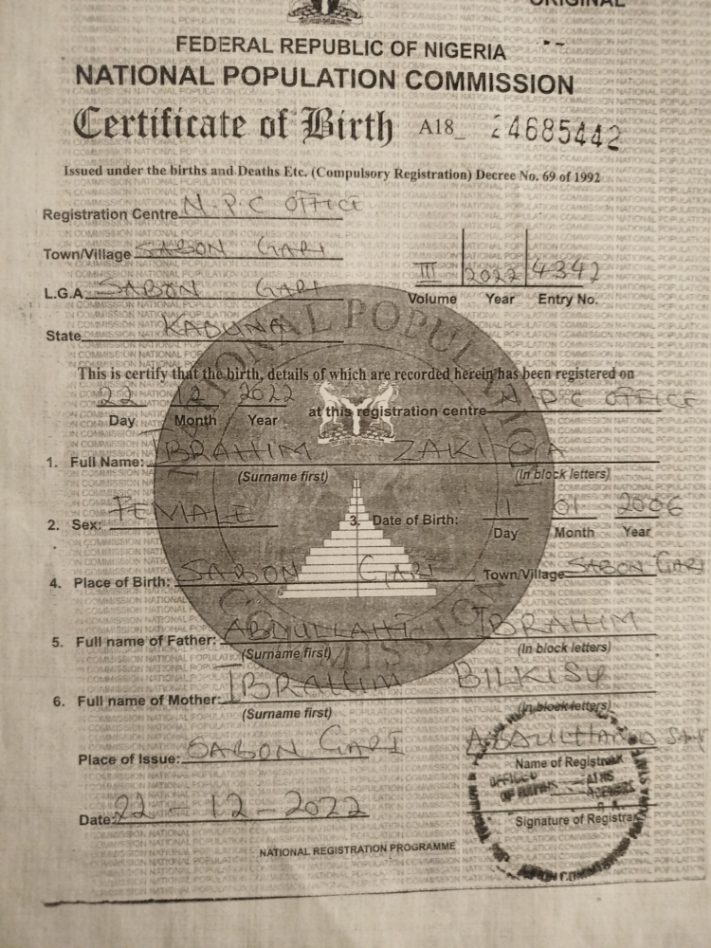 ORIGINAL
FEDERAL REPUBLIC OF NIGERIA
NATIONAL POPULATION COMMISSION
Certificate of Birth A18_ 24685442
Issued under the births and Deaths Etc. (Compulsory Registration) Decree No. 69 of 1992
Registration Centre N.P.C OFFICE
Town/Village SABON GARI
L.G.A SABON GARI
III 2022 4342
Volume Year Entry No.
State KADUNA
This is certify that the birth, details of which are recorded herein has been registered on
22 12 2022 at this registration centre N P C OFFICE
Day Month Year
1. Full Name: IBRAHIM
(Surname first) (In block letters)
2. Sex: FEMALE 3. Date of Birth: 11 01 2006
Day Month Year
4. Place of Birth: SABON GARI Town/Village SABON GARI
5. Full name of Father: ABDULLAHI IBRAHIM
(Surname first) (In block letters)
6. Full name of Mother: IBRAHIM BILKISU
(Surname first) (In block letters)
Place of Issue: SABON GARI
Name of Registrar
Signature of Registrar
Date: 22 - 12 - 2022
NATIONAL REGISTRATION PROGRAMME
NATIONAL POPULATION COMMISSION